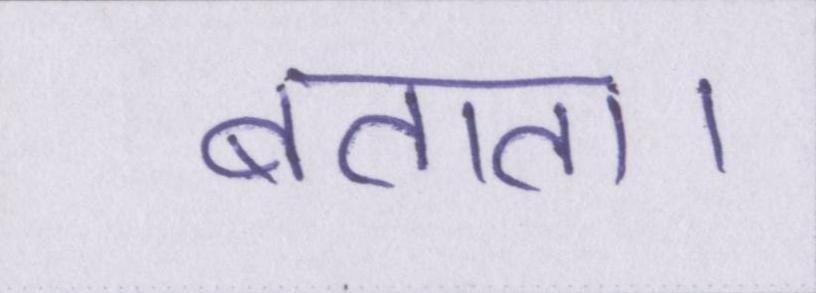 बताता।